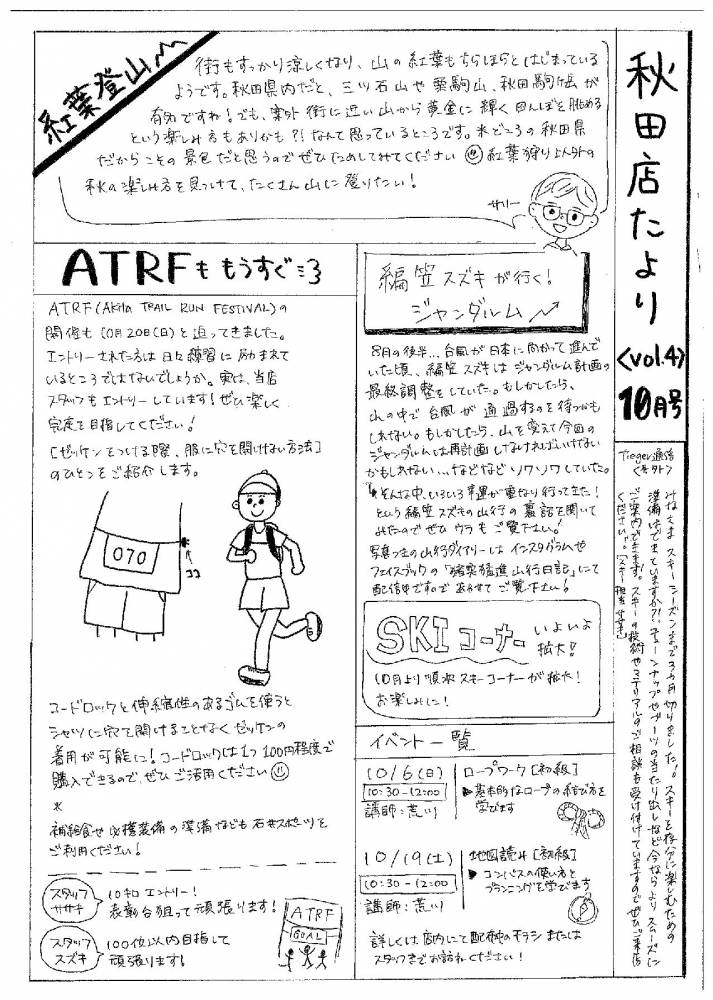 秋田店たより
<vol.4>
10月号
紅葉登山
街もすっかり涼しくなり、山の紅葉もちらほらとはじまっている
ようです。秋田県内だと、三ツ石山や栗駒山、秋田駒ヶ岳が
有名ですね！でも、案外街に近い山から黄金に輝く田んぼを眺める
という楽しみ方もありかも?!なんて思っているところです。米どころの秋田県
だからこその景色だと思うのでぜひためしてみてください 紅葉狩り以外の
秋の楽しみ方を見つけて、たくさん山に登りたい！
サリー
ATRFももうすぐ
ATRF(Akita TRAIL RUN FESTIVAL)の
開催も10月20日(日)と迫ってきました。
エントリーされた方は日々練習に励まれて
いるところではないでしょうか。実は、当店
スタッフもエントリーしています！ぜひ楽しく
完走を目指してください！
[ゼッケンをつける際、服に穴を開けない方法]
のひとつをご紹介します。
070
ココ
コードロックと伸縮性のあるゴムを使うと
シャツに穴を開けることなくゼッケンの
着用が可能に！コードロックは1つ100円程度で
購入できるので、ぜひご活用ください
*
補給食や必携装備の準備なども石井スポーツを
ご利用ください！
スタッフ
ササキ
10キロエントリー！
表彰台狙って頑張ります！
スタッフ
スズキ
100位以内目指して
頑張ります！
ATRF
GOAL
編笠スズキが行く！
ジャンダルム
8月の後半…台風が日本に向かって進んで
いた頃、編笠スズキはジャンダルム計画の
最終調整をしていた。もしかしたら、
山の中で台風が通過するのを待つかも
しれない。もしかしたら、山を変えて今回の
ジャンダルムは再計画しなければいけない
かもしれない…などなどソワソワしていた。
そんな中、いろいろ幸運が重なり行ってきた！
という編笠スズキの山行の裏話を聞いて
みたのでぜひウラもご覧下さい。
写真つきの山行ダイアリーはインスタグラムや
フェイスブックの「猪突猛進山行日記」にて
配信中ですのであわせてご覧下さい！
SKIコーナー いよいよ
拡大！！
10月より順次スキーコーナーが拡大！
お楽しみに！
イベント一覧
10/6(日)
10:30-12:00
講師：荒川
ロープワーク[初級]
基本的なロープの結び方を
学びます
10/19(土)
10:30-12:00
講師：荒川
地図読み[初級]
コンパスの使い方と
プランニングを学びます
詳しくは店内にて配布中のチラシまたは
スタッフまでお訪ねください！
Tieger通信
<号外>
みなさま スキーシーズンまで3ヶ月切りました。スキーを存分に楽しむための
準備はできていますか?!チューンナップやブーツの当たり出しなど今ならよりスムーズに
ご案内できます。スキーの技術やマテリアルのご相談も受け付けていますのでぜひご来店
ください。[スキー担当ササキ]